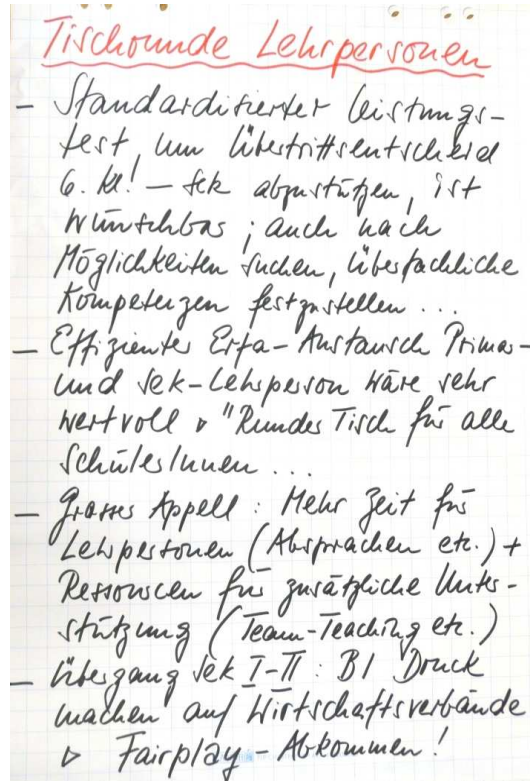 Tischrunde Lehrpersonen
- Standardisierter Leistungs-
test, um Übertrittsentscheid
6. Kl! - Sek abzustützen, ist
wünschbar ; auch nach
Möglichkeiten suchen, überfachliche
Kompetenzen festzustellen ...
- Effizienter Erfa-Austausch Primar-
und Sek-Lehrperson wäre sehr
wertvoll ▹ "Runder Tisch für alle
SchülerInnen ...
- Grosser Appell : Mehr Zeit für
Lehrpersonen (Absprachen etc.) +
Ressourcen für zusätzliche Unter-
stützung (Team-Teaching etc.)
- Übergang Sek I-II : BI Druck
machen auf Wirtschaftsverbände
▹ Fairplay - Abkommen !